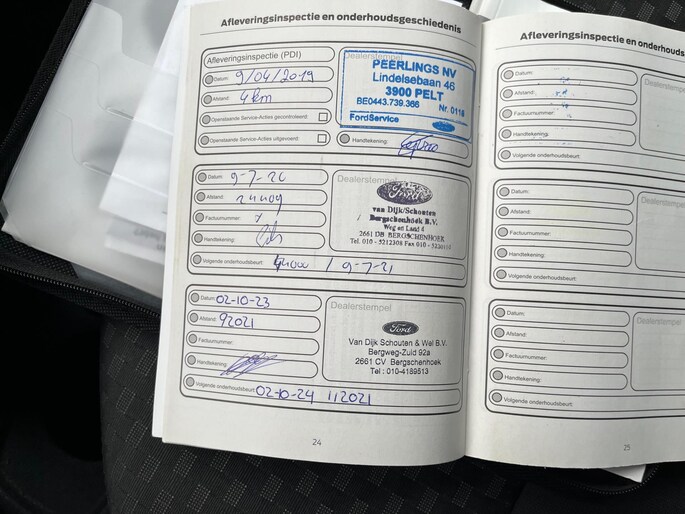 Afleveringsinspectie en onderhoudsgeschiedenis
Afleveringsinspectie (PDI)
Datum: 9/04/2019
Afstand: 4 km
Openstaande Service-Acties gecontroleerd:
Openstaande Service-Acties uitgevoerd:
Dealerstempel
PEERLINGS NV
Lindelsebaan 46
3900 PELT
BE0443.739.366
Nr. 011
FordService
Handtekening:
Datum: 9-7-20
Afstand:
Factuurnummer:
Handtekening:
Volgende onderhoudsbeurt: / 9-7-21
Dealerstempel
Ford
van Dijk/Schouten
Bergschenhoek B.V.
Weg en Land 4
2661 DB BERGSCHENHOEK
Tel. 010 - 5212308 Fax 010 -
Datum: 02-10-23
Afstand: 92021
Factuurnummer:
Handtekening:
Volgende onderhoudsbeurt: 02-10-24 112021
Dealerstempel
Ford
Van Dijk Schouten & Wel B.V.
Bergweg-Zuid 92a
2661 CV Bergschenhoek
Tel : 010-4189513
24
Afleveringsinspectie en onderhouds
Datum:
Afstand:
Factuurnummer:
Handtekening:
Volgende onderhoudsbeurt:
Dealerstempel
Datum:
Afstand:
Factuurnummer:
Handtekening:
Volgende onderhoudsbeurt:
Dealerstem
Datum:
Afstand:
Factuurnummer:
Handtekening:
Volgende onderhoudsbeurt:
Dealerst
25